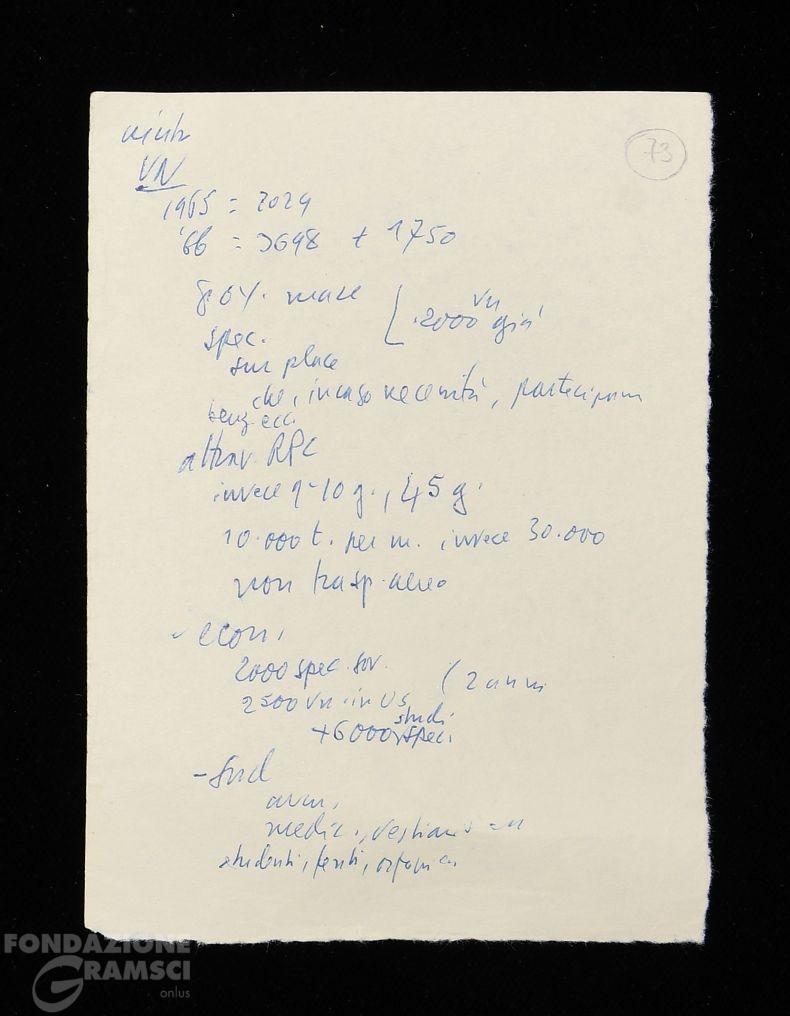 73
VN
1965 = 2029
'66 = 3698 + 1750
80%. mace
vn
2000 già
spec.
sur place
che, in caso necessità, partecipam
benz. ecc.
attrav. RPC
invece 9-10 g., 45 g.
10.000 t. per m. invece 30.000
non trasp. aereo
- econ.
2000 spec. sov.
2500 vn. in US (2 anni
studi
+6000 speci
- Sud
arm.
medic.,
studenti, feriti, orfani
FONDAZIONE
GRAMSCI
onlus